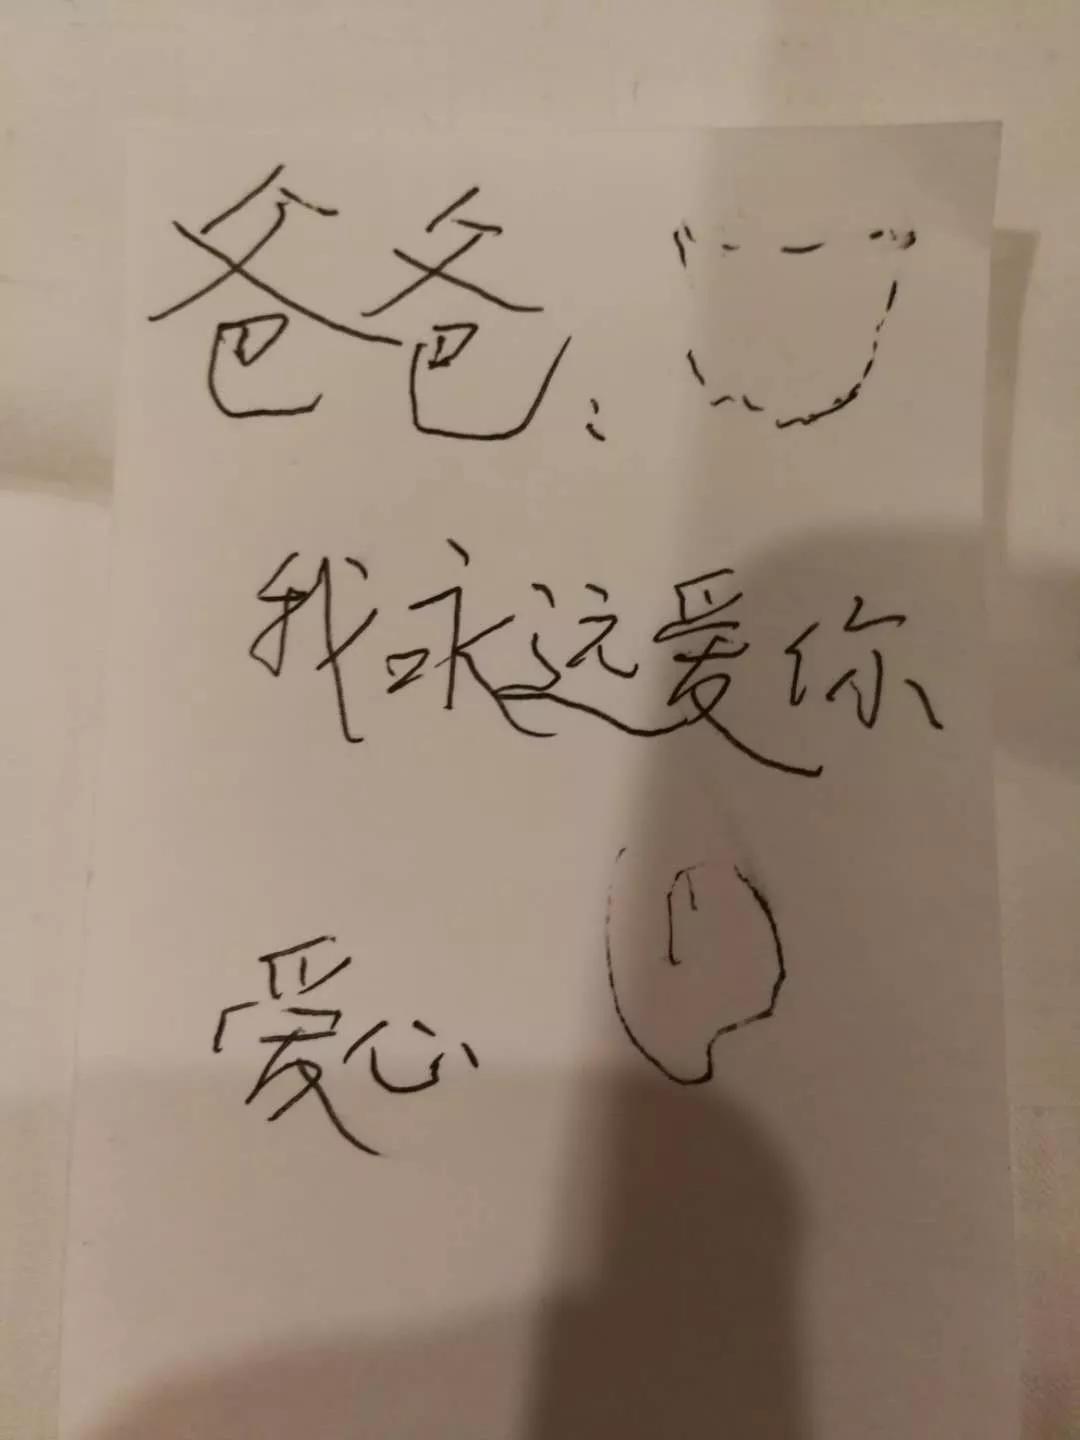 爸爸：
我永远爱你
爱心